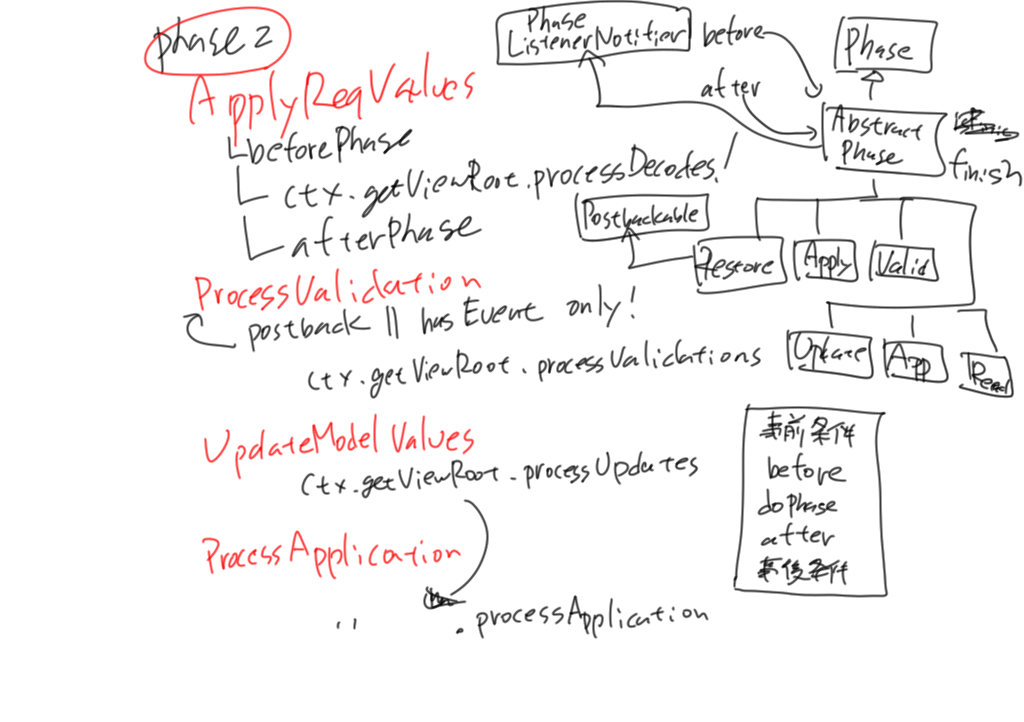 phase2
ApplyReqValues
beforePhase
ctx.getViewRoot.processDecodes!
afterPhase
ProcessValidation
postback || hasEvent only!
ctx.getViewRoot.processValidations
UpdateModelValues
ctx.getViewRoot.processUpdates
ProcessApplication
〃 .processApplication
Phase
ListenerNotifier
before
after
Phase
Abstract
Phase
finish
Postbackable
Restore
Apply
Valid
Update
App
事前条件
before
doPhase
after
事後条件